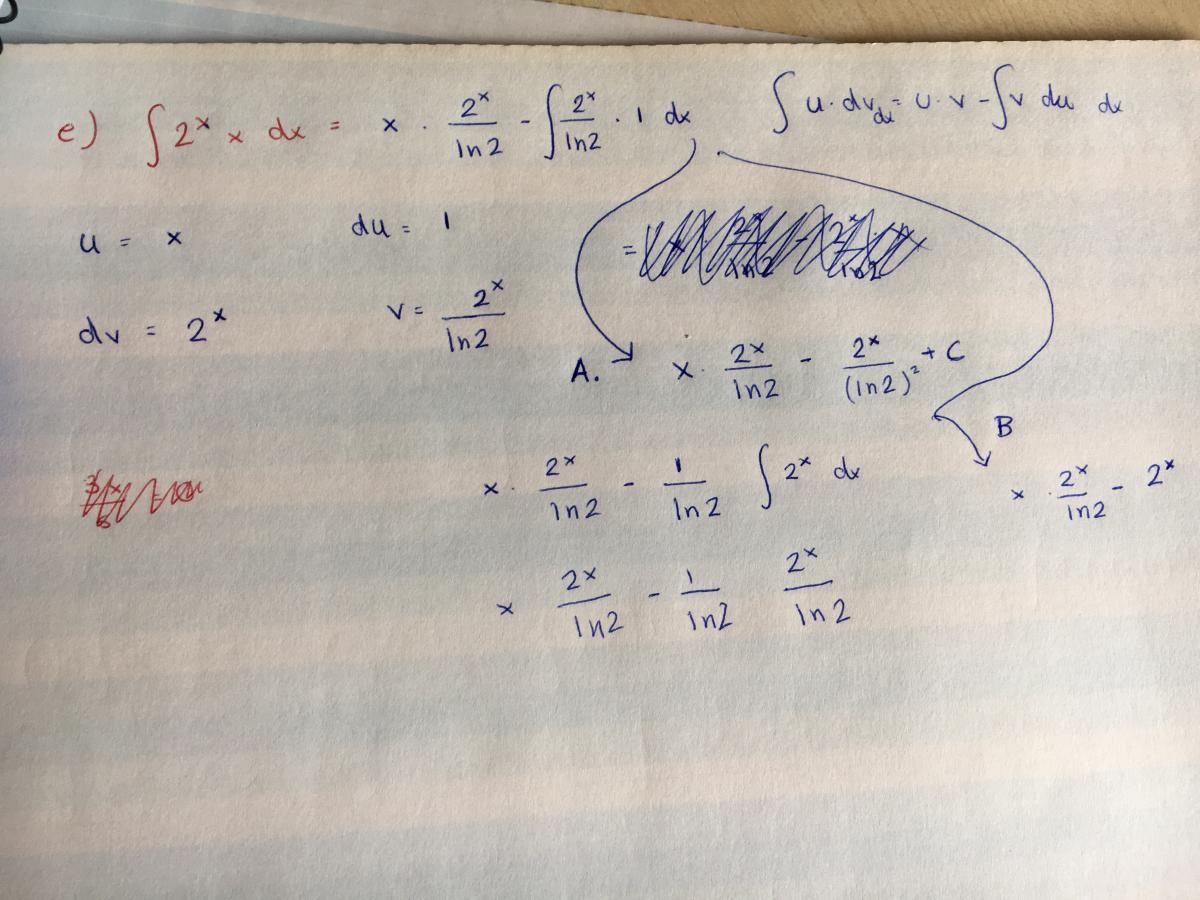 e) ∫ 2^x x dx = x · 2^x/ln2 - ∫ 2^x/ln2 · 1 dx
∫ u · dv dx = u · v - ∫ v du dx
u = x du = 1
=
dv = 2^x v = 2^x/ln2
A. x · 2^x/ln2 - 2^x/(ln2)² + C
B
x · 2^x/ln2 - 1/ln2 ∫ 2^x dx
x · 2^x/ln2 - 2^x
x 2^x/ln2 - 1/ln2 2^x/ln2